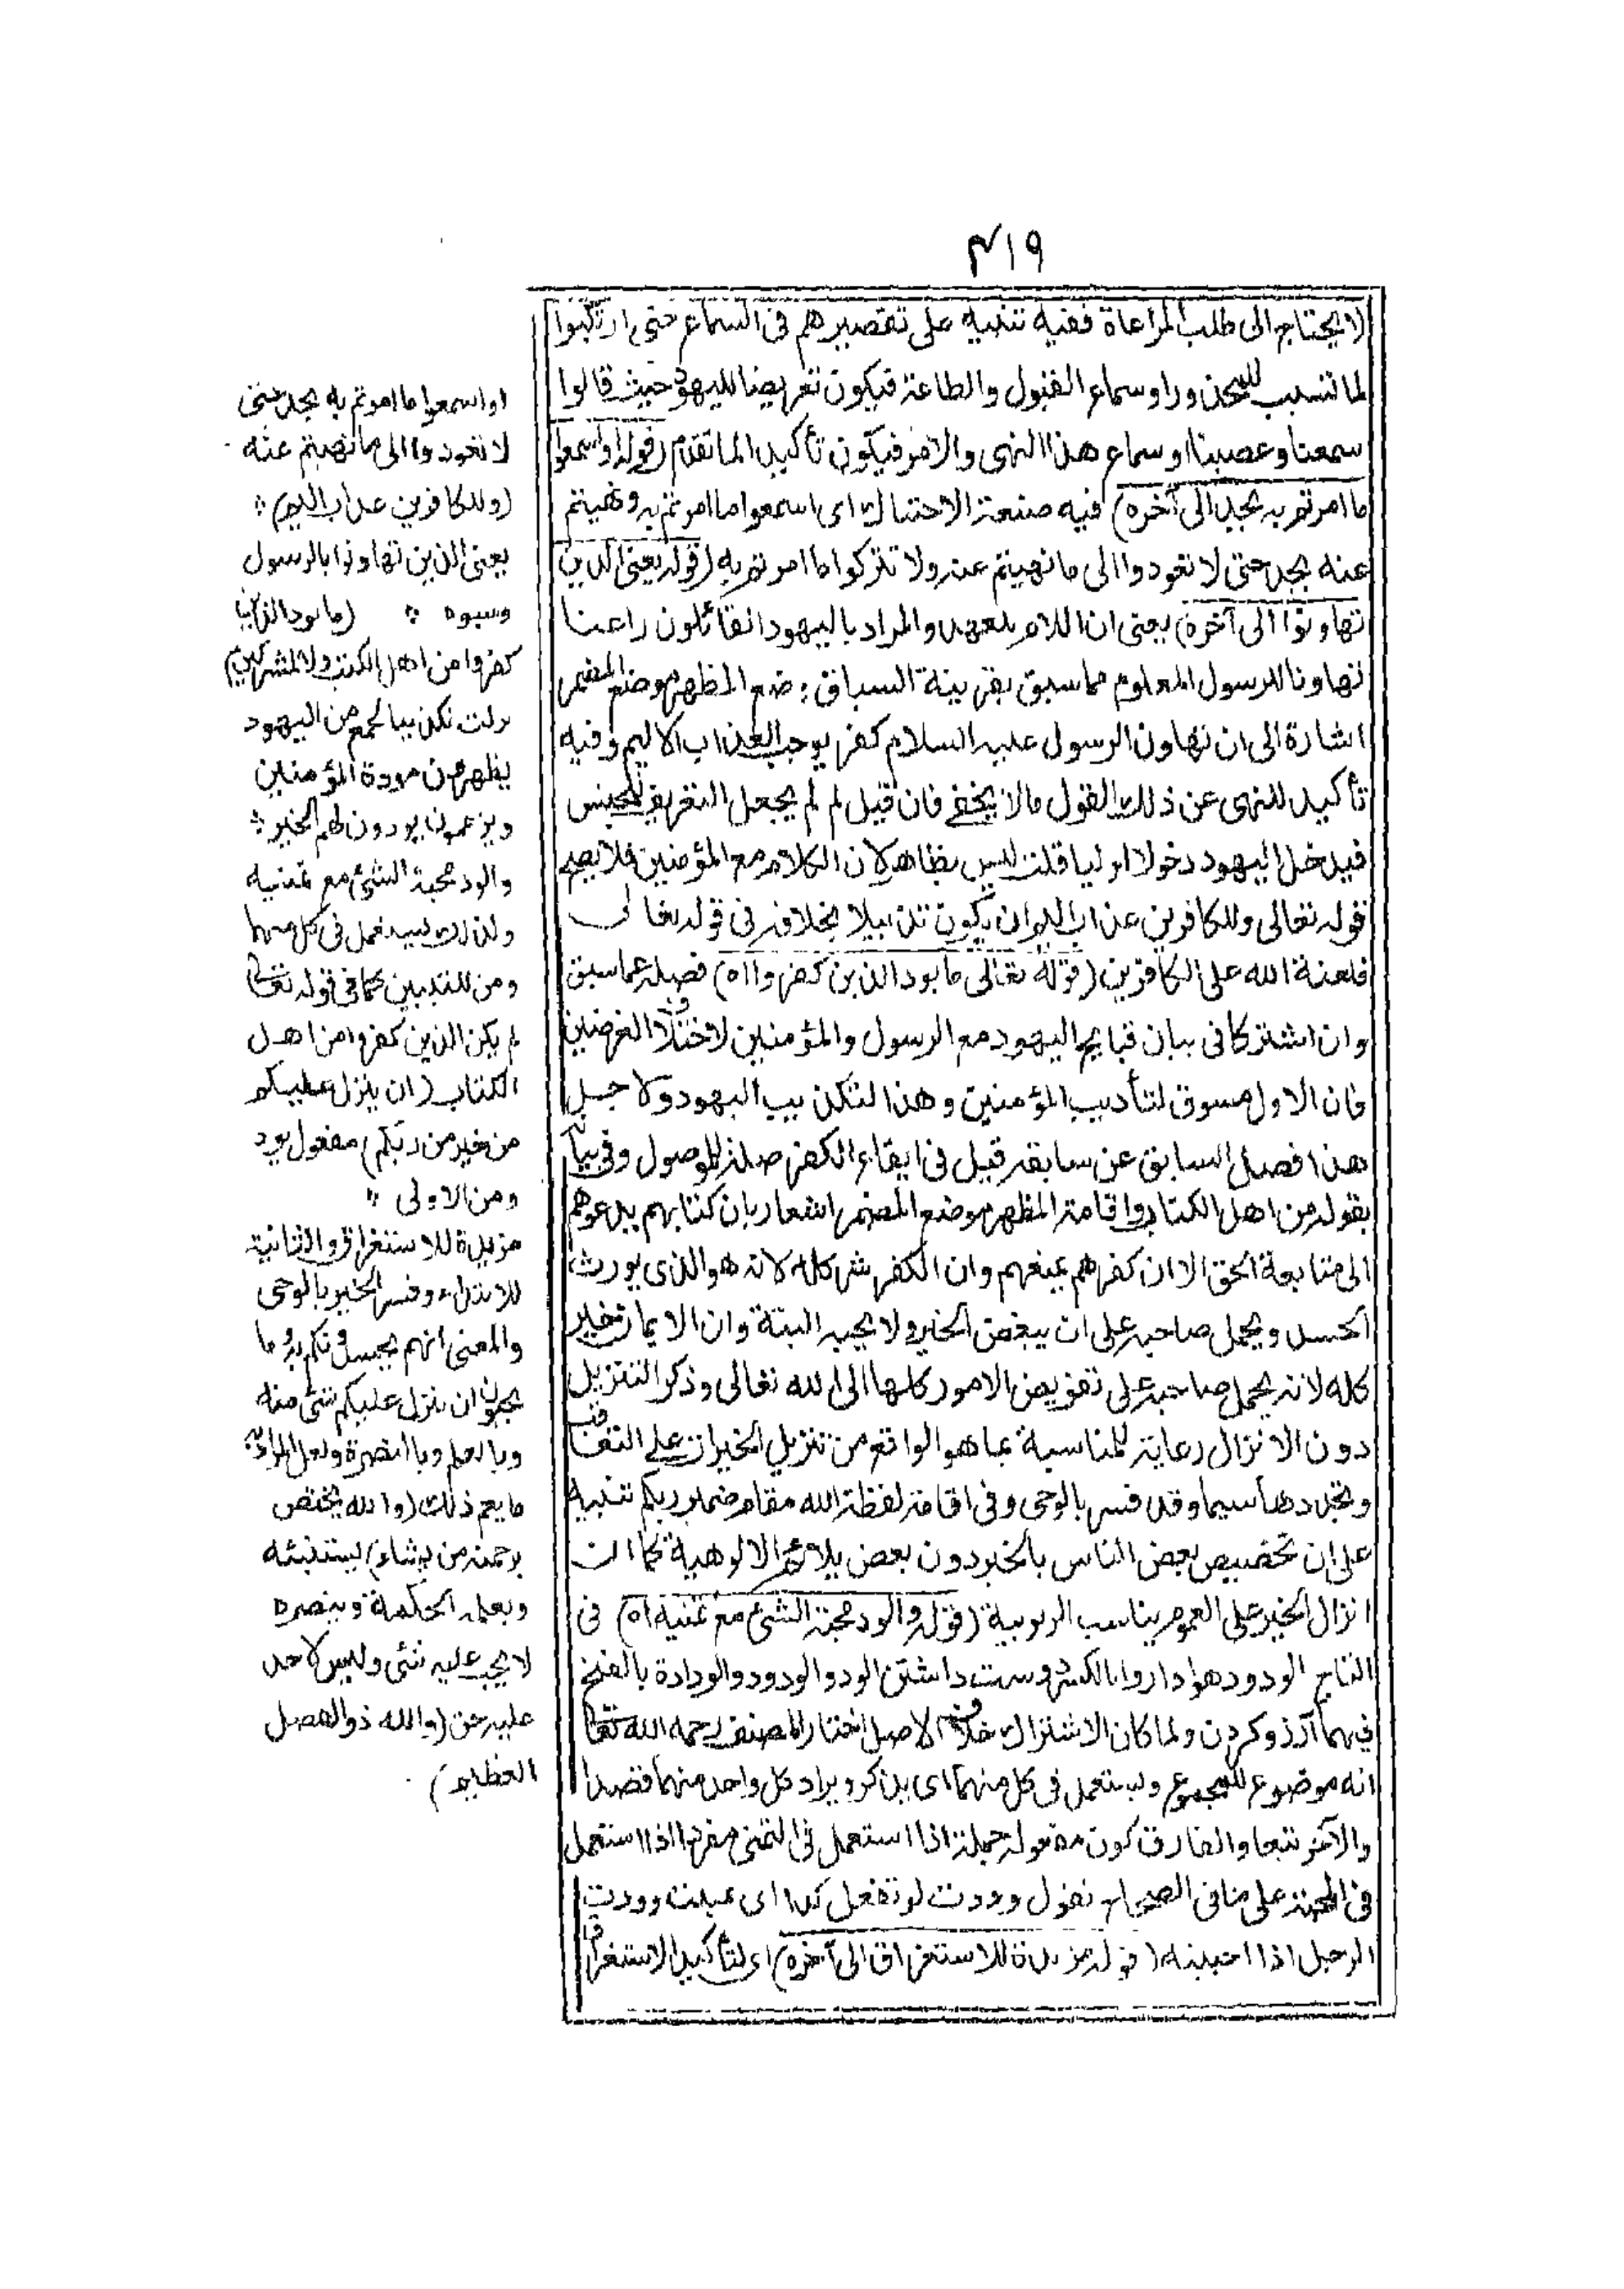 ٤١٩
لا يحتاج الى طلب المراعاة ففيه تنبيه على تقصيرهم فى السماع حتى ارتكبوا
لما تسبب للمحذورا وسماع القبول والطاعة فيكون تعريضا لليهود حيث قالوا
سمعنا وعصينا او سماع هذا النهى والامر فيكون تأكيدا لما تقدم (قوله او اسمعوا
ما امرتم به بجد الى آخره) فيه صنعة الاحتباك اى اسمعوا ما امرتم به ونهيتم
عنه بجد حتى لا تعودوا الى ما نهيتم عنه ولا تتركوا ما امرتم به (قوله يعنى الذين
تهاونوا الى آخره) يعنى ان اللام للعهد والمراد باليهود القائلون راعنا
تهاونا للرسول المعلوم مما سبق بقرينة السباق وضع المظهر موضع المضمر
اشارة الى ان تهاون الرسول عليه السلام كفر يوجب العذاب الاليم وفيه
تأكيد للنهى عن ذلك القول ما لا يخفى فان قيل لم لم يجعل التعريف للجنس
فيدخل اليهود دخولا اوليا قلت ليس بظاهر لان الكلام مع المؤمنين فلا يصح
قوله تعالى وللكافرين عذاب اليم ان يكون تذييلا بخلافه فى قوله تعالى
فلعنة الله على الكافرين (قوله تعالى ما يود الذين كفروا اه) فصله عما سبق
وان اشتركا فى بيان قبايح اليهود مع الرسول والمؤمنين لاختلاف الغرضين
فان الاول مسوق لتأديب المؤمنين وهذا لتكذيب اليهود ولاجل
هذا فصل السابق عن سابقه قيل فى ايقاع الكفر صلة للموصول وفى بيانه
بقوله من اهل الكتاب واقامة المظهر موضع المضمر اشعار بان كتابهم يدعوهم
الى متابعة الحق الا ان كفرهم يمنعهم وان الكفر شر كله لانه هو الذى يورث
الحسد ويحمل صاحبه على ان يبغض الخير ولا يحبه البتة وان الايمان خير
كله لانه يحمل صاحبه على تفويض الامور كلها الى الله تعالى وذكر التنزيل
دون الانزال رعاية للمناسبة بما هو الواقع من تنزيل الخيرات على التعاقب
وتجددها سيما وقد فسر بالوحى وفى اقامة لفظة الله مقام ضمير ربكم تنبيه
على ان تخصيص بعض الناس بالخير دون بعض يلائم الالوهية كما ان
انزال الخير على العموم يناسب الربوبية (قوله والود محبة الشئ مع تمنيه اه) فى
التاج الود ودهوادار والكسر دوست داشتن الود والودود والودادة بالفتح
فيهما آرزو كردن ولما كان الاشتراك خلاف الاصل اختار المصنف رحمه الله تعالى
انه موضوع للمجموع ويستعمل فى كل منهما اى يذكر ويراد كل واحد منهما قصدا
والآخر تبعا والفارق كون مفعوله جملة اذا استعمل فى التمنى مفردا اذا استعمل
فى المحبة على ما فى الصحاح تقول وددت لو تفعل كذا اى تمنيت ووددت
الرجل اذا احببته (قوله مزيدة للاستغراق الى آخره) اى لتأكيد الاستغراق
او اسمعوا ما امرتم به بجد حتى
لا تعودوا الى ما نهيتم عنه
(وللكافرين عذاب اليم) *
يعنى الذين تهاونوا بالرسول
وسبوه * (ما يود الذين
كفروا من اهل الكتب ولا المشركين)
نزلت تكذيبا لجمع من اليهود
يظهرون مودة المؤمنين
ويزعمون انهم يودون لهم الخير *
والود محبة الشئ مع تمنيه
ولذلك يستعمل فى كل منهما
ومن للتبيين كما فى قوله تعالى
لم يكن الذين كفروا من اهل
الكتاب (ان ينزل عليكم
من خير من ربكم) مفعول يود
ومن الاولى *
مزيدة للاستغراق والثانية
للابتداء وفسر الخير بالوحى
والمعنى انهم يحسدونكم به وما
يحبون ان ينزل عليكم شئ منه
وبالعلم وبالنصرة ولعل المراد به
ما يعم ذلك (والله يختص
برحمته من يشاء) يستنبئه
ويعلمه الحكمة وينصره
لا يجب عليه شئ وليس لاحد
عليه حق (والله ذو الفضل
العظيم)